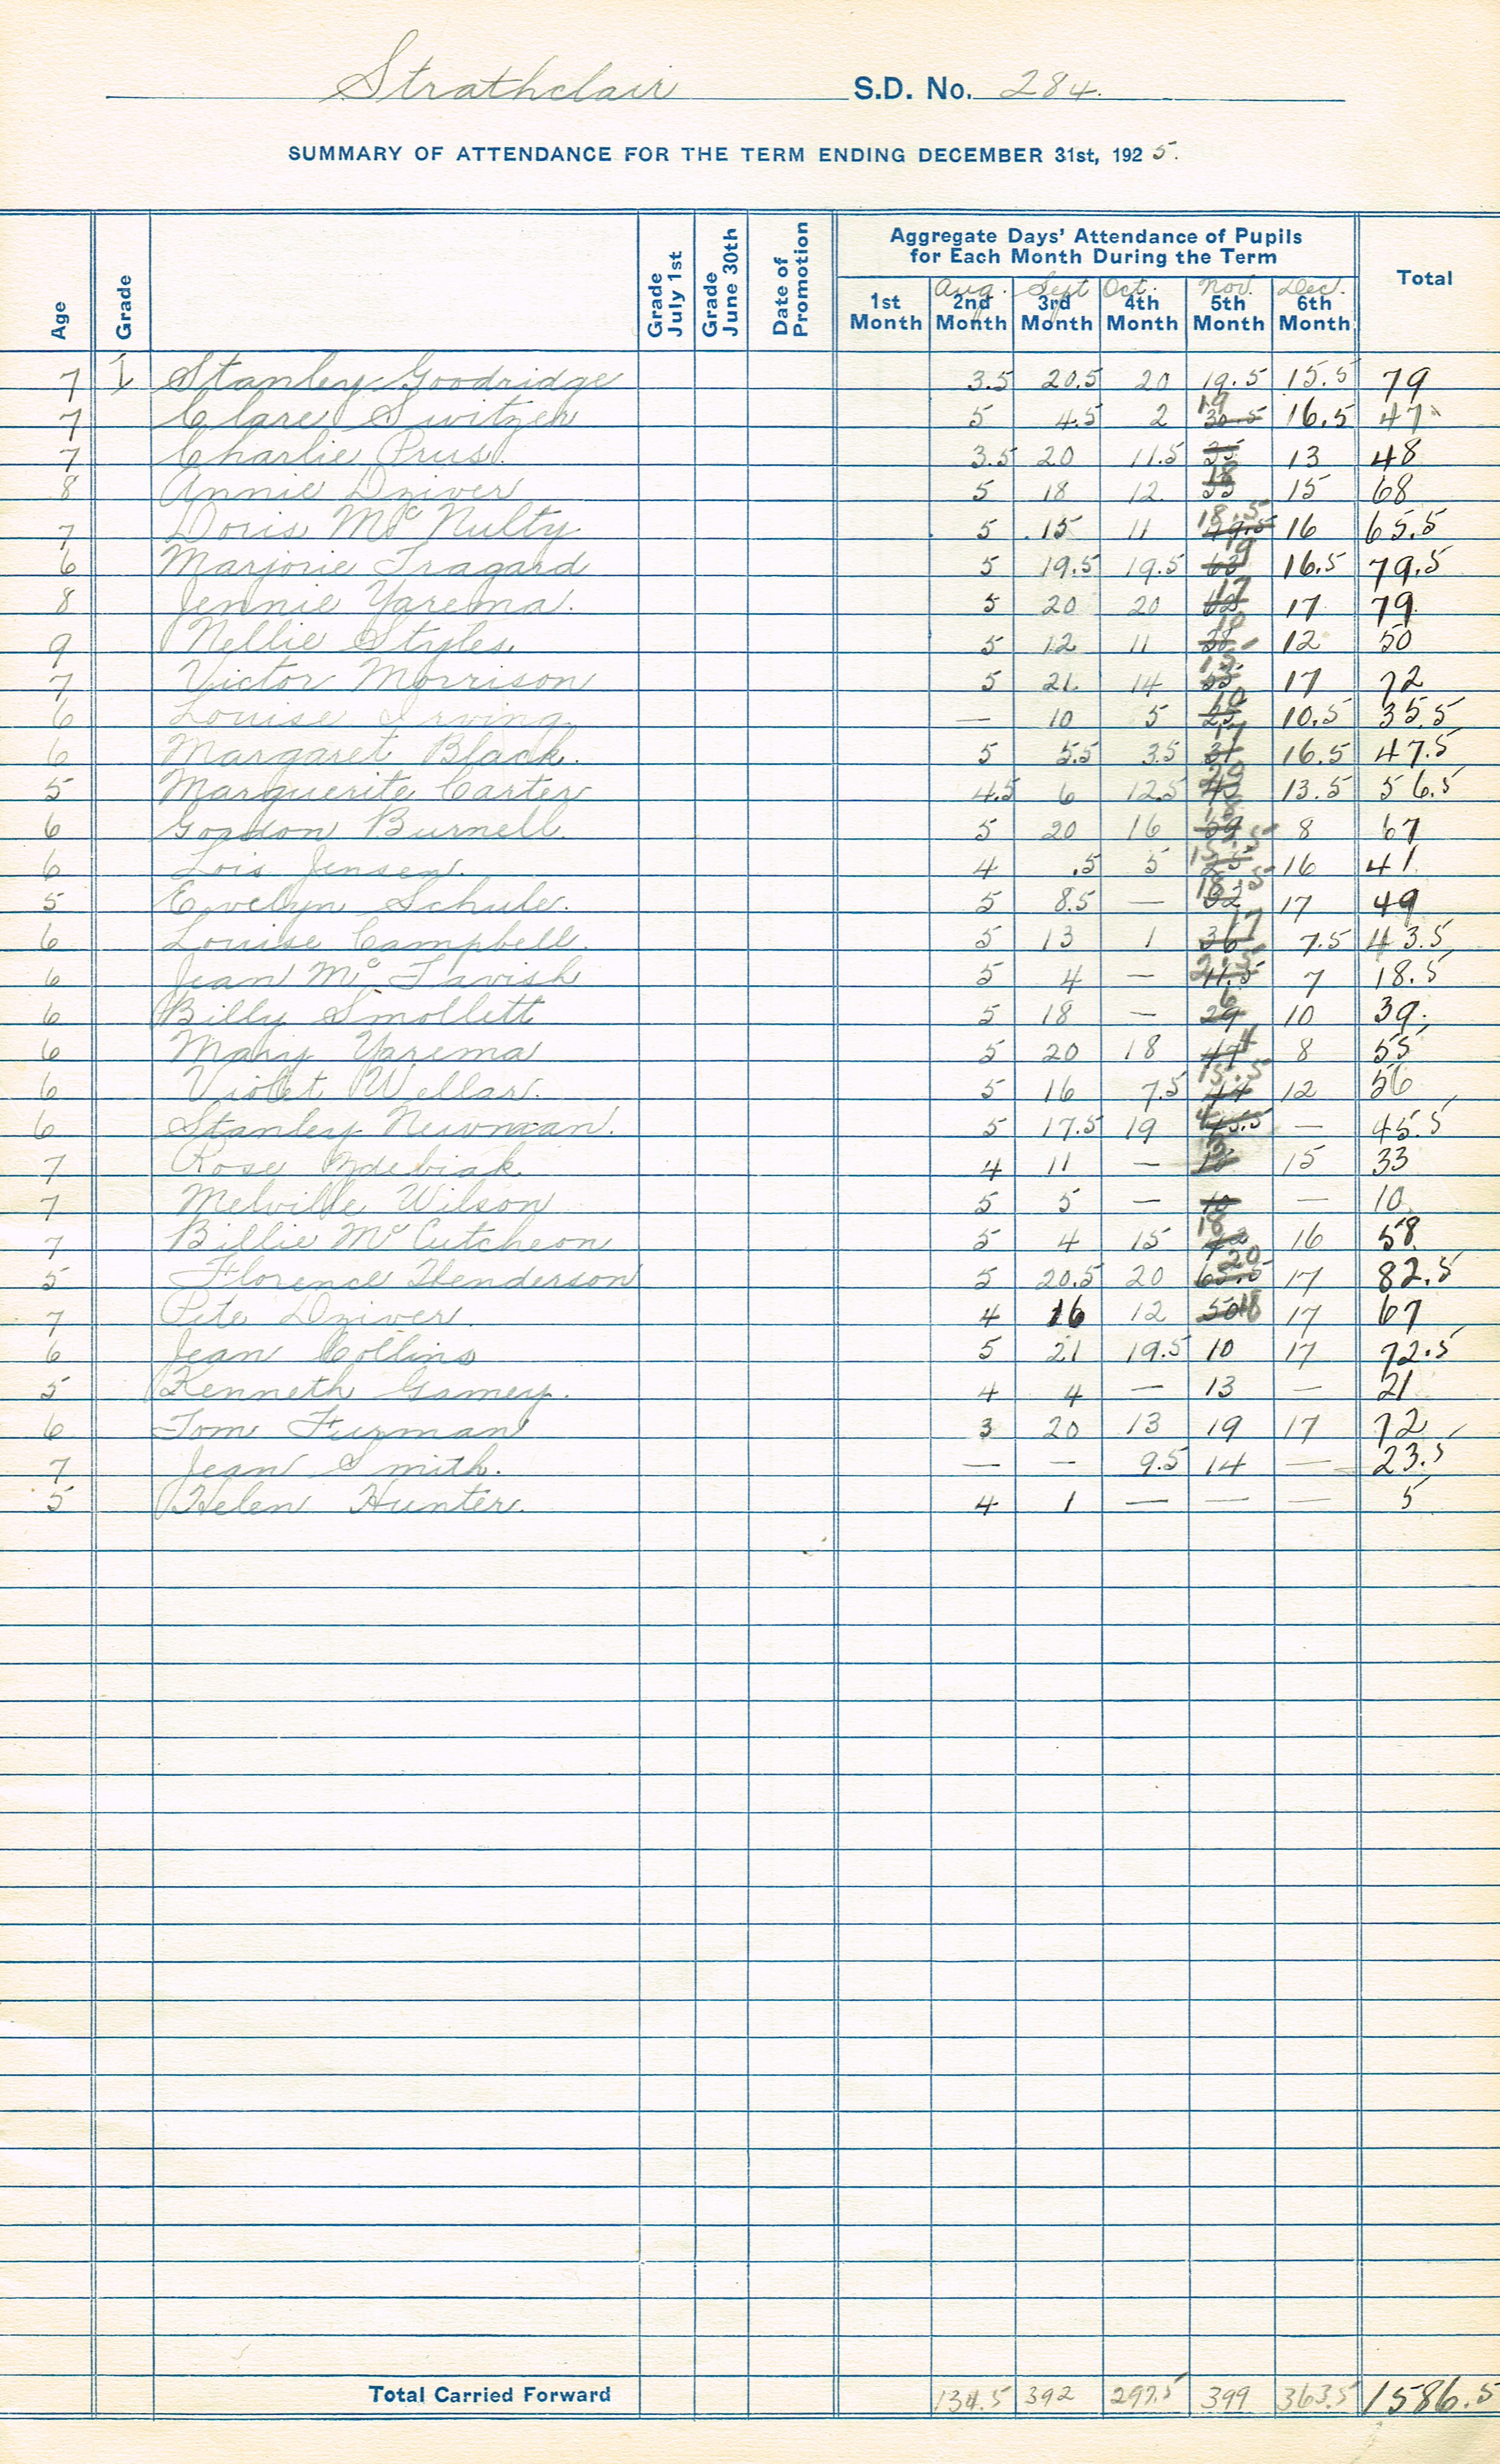 Strathclair S.D. No. 284.
SUMMARY OF ATTENDANCE FOR THE TERM ENDING DECEMBER 31st, 1925.
Age Grade Grade July 1st Grade June 30th Date of Promotion Aggregate Days' Attendance of Pupils for Each Month During the Term Total
Aug. Sept Oct. Nov. Dec.
1st Month 2nd Month 3rd Month 4th Month 5th Month 6th Month
7 I Stanley Goodridge 3.5 20.5 20 19.5 15.5 79
7 Clare Switzer 5 4.5 2 19 30.5 16.5 47
7 Charlie Prus. 3.5 20 11.5 35 13 48
8 Annie Dziver 5 18 12. 18 35 15 68
7 Doris McNulty 5 15 11 18.5 49.5 16 65.5
6 Marjorie Tragard 5 19.5 19.5 19 63 16.5 79.5
8 Jennie Yarema. 5 20 20 17 62 17 79.
9 Nellie Styles. 5 12 11 10 38 12 50
7 Victor Morrison 5 21. 14 15 55 17 72
6 Louise Irving — 10 5 10 25 10.5 35.5
6 Margaret Black. 5 5.5 3.5 17 31 16.5 47.5
5 Marguerite Carter 4.5 6 12.5 20 43 13.5 56.5
6 Gordon Burnell. 5 20 16 18 59 8 67
6 Lois Jensen. 4 .5 5 15.5 25 16 41
5 Evelyn Schule. 5 8.5 — 18.5 32 17 49
6 Louise Campbell. 5 13 1 17 36 7.5 43.5
6 Jean McTavish 5 4 — 2.5 11.5 7 18.5
6 Billy Smollett 5 18 — 6 29 10 39.
6 Mary Yarema 5 20 18 4 47 8 55
6 Violet Wellar. 5 16 7.5 15.5 44 12 56
6 Stanley Newman. 5 17.5 19 4 45.5 — 45.5
7 Rose 4 11 — 3 18 15 33
7 Melville Wilson 5 5 — 10 — 10
7 Billie McCutcheon 5 4 15 18 42 16 58
5 Florence Henderson 5 20.5 20 20 65.5 17 82.5
7 Pete Dziver. 4 16 12 50 18 17 67
6 Jean Collins 5 21 19.5 10 17 72.5
5 Kenneth Gamey. 4 4 — 13 — 21
6 Tom Furman 3 20 13 19 17 72
7 Jean Smith. — — 9.5 14 — 23.5
5 Helen Hunter. 4 1 — — — 5
Total Carried Forward 134.5 392 297.5 399 363.5 1586.5